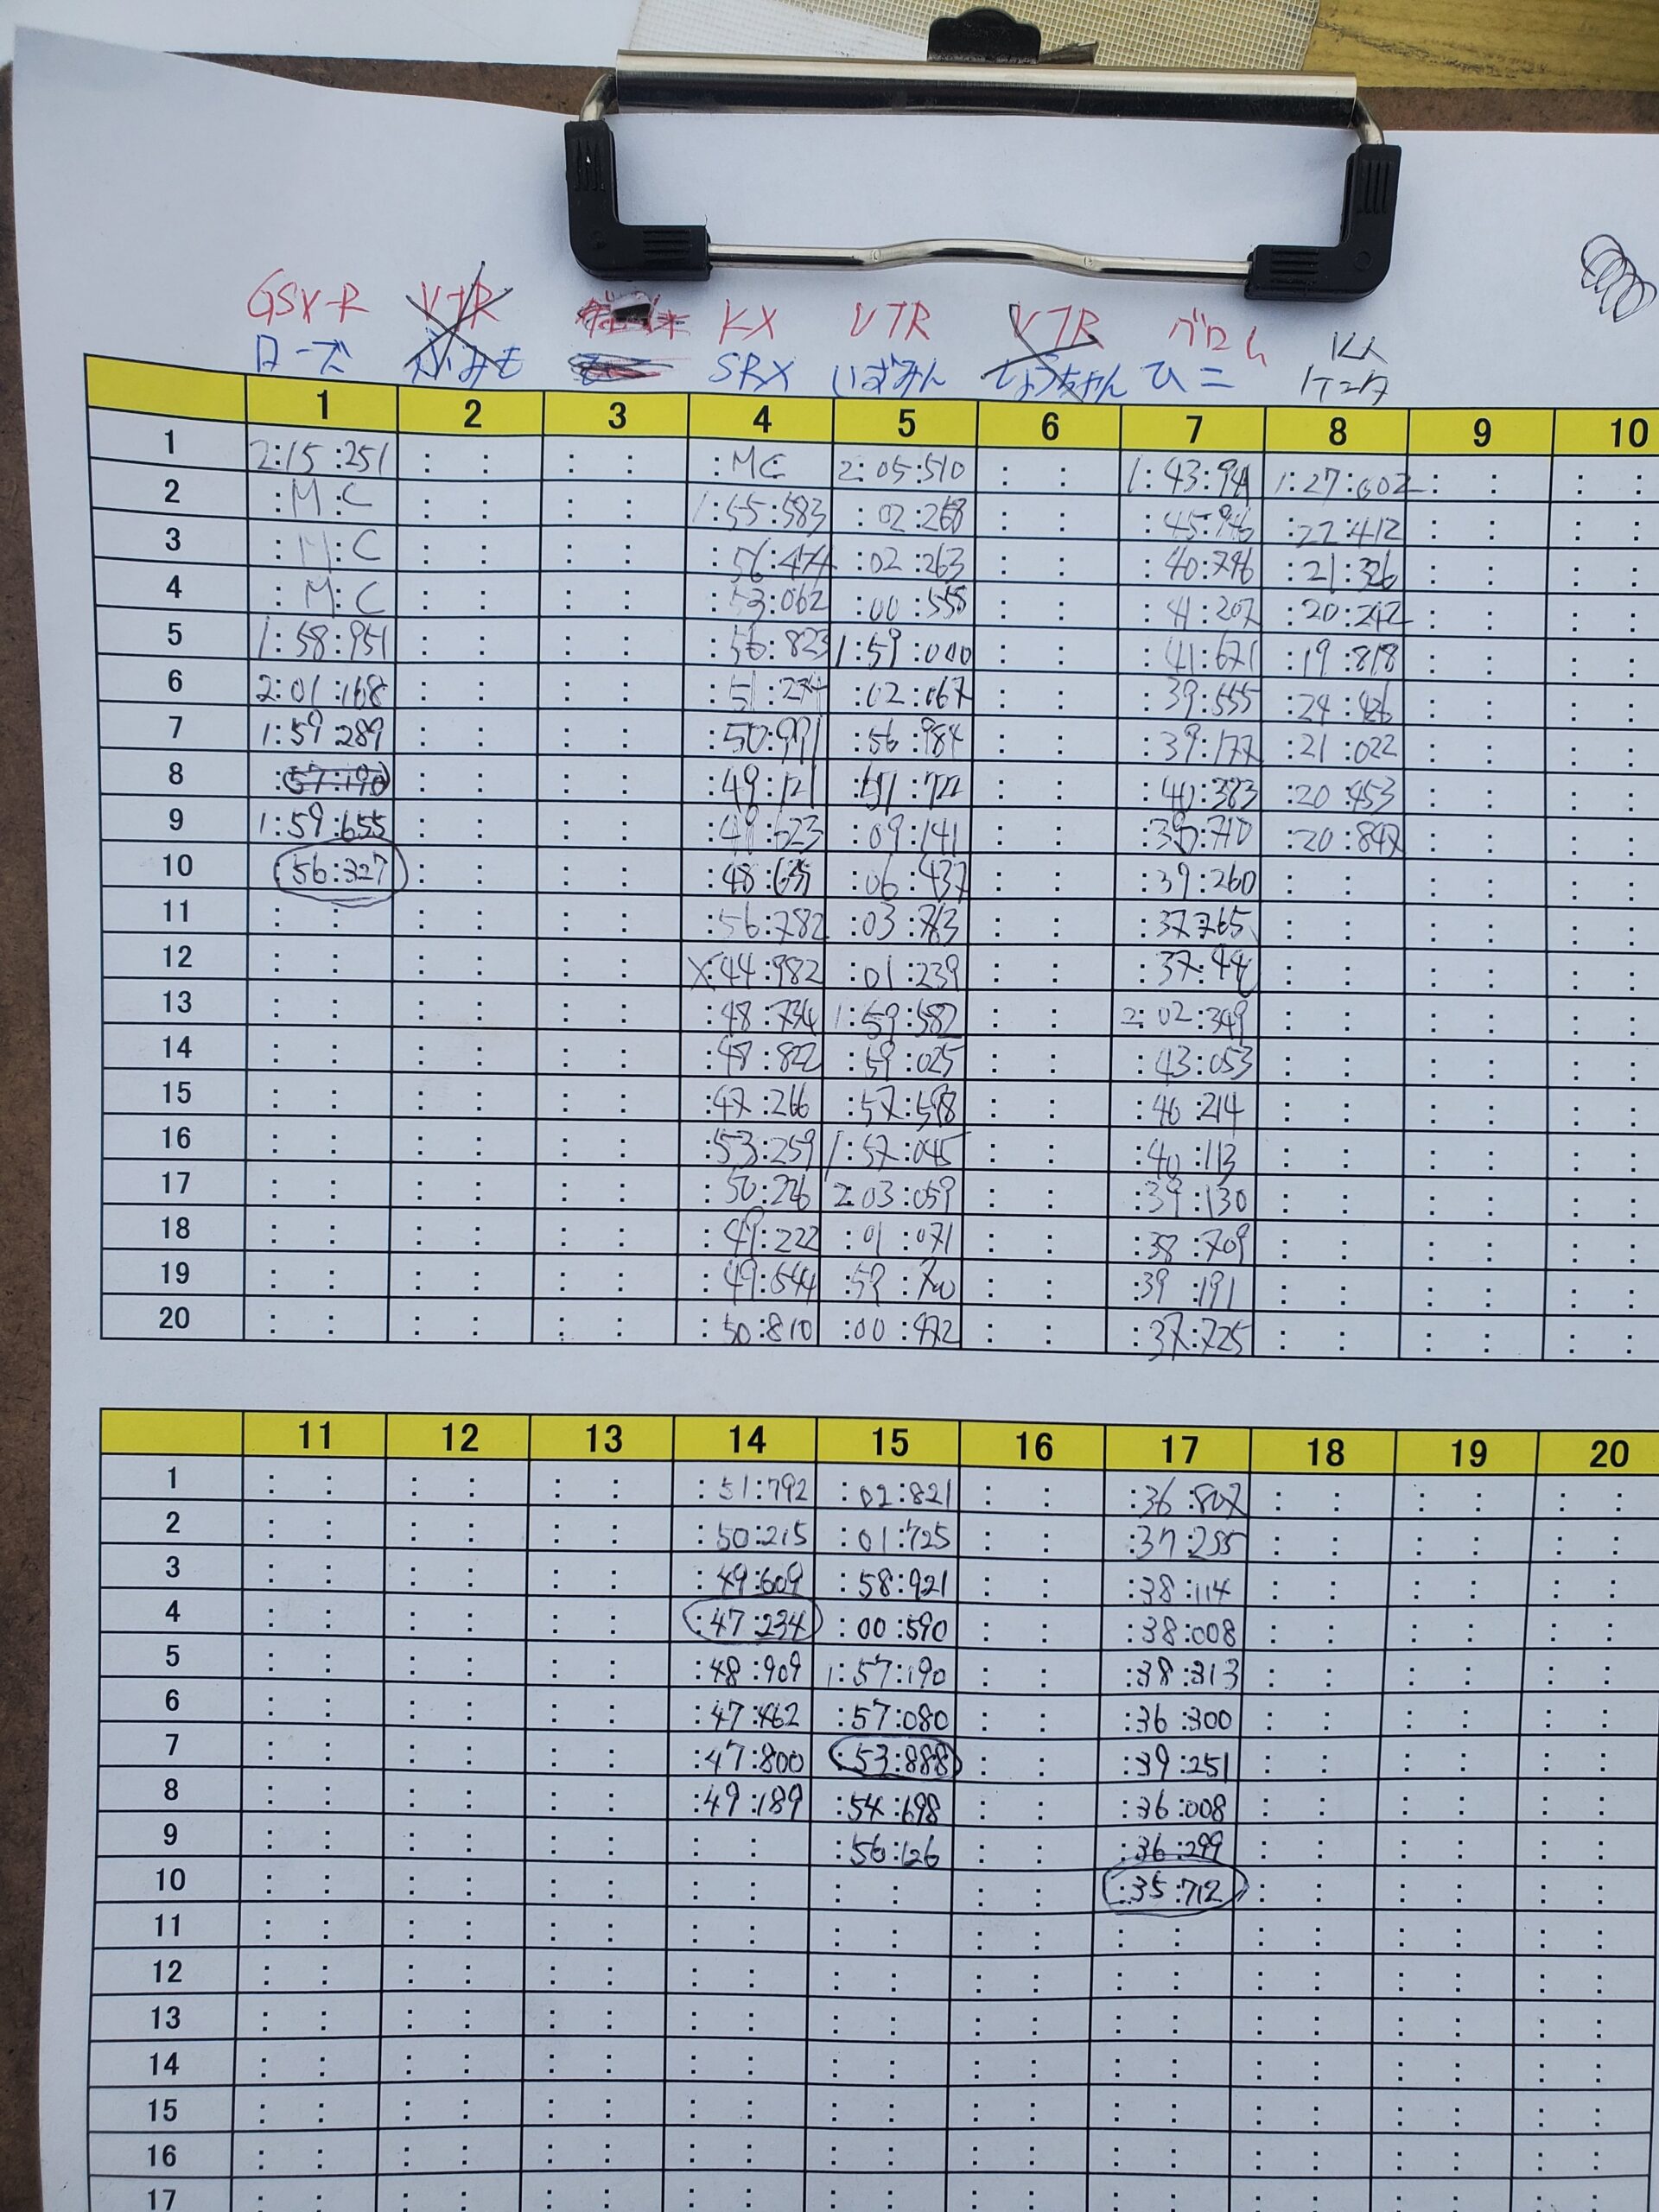 GSX-R VTR KX VTR VTR グロム KX
ローズ ふみも SRX いずみん しょうちゃん ひこ ケニタ
1 2 3 4 5 6 7 8 9 10
1 2:15:251 : : : : :MC 2:05:510 : : 1:43:941 1:27:602 : : : :
2 :M:C : : : : 1:55:583 :02:268 : : :45:946 :22:412 : : : :
3 :M:C : : : : :56:474 :02:263 : : :40:796 :21:326 : : : :
4 :M:C : : : : :53:062 :00:555 : : :41:207 :20:242 : : : :
5 1:58:951 : : : : :56:823 1:59:000 : : :41:671 :19:818 : : : :
6 2:01:168 : : : : :51:274 :02:067 : : :39:555 :24:426 : : : :
7 1:59:289 : : : : :50:991 :56:984 : : :39:177 :21:022 : : : :
8 :57:190 : : : : :49:121 : : :40:383 :20:453 : : : :
9 1:59:655 : : : : :49:623 :09:141 : : :39:710 :20:847 : : : :
10 :56:327 : : : : :48:635 :06:437 : : :39:260 : : : : : :
11 : : : : : : :56:782 :03:763 : : :37:765 : : : : : :
12 : : : : : : X:44:982 :01:239 : : :37:44 : : : : : :
13 : : : : : : :48:734 1:59:582 : : 2:02:349 : : : : : :
14 : : : : : : :48:822 :59:025 : : :43:053 : : : : : :
15 : : : : : : :47:266 :57:598 : : :40:214 : : : : : :
16 : : : : : : :53:259 1:57:045 : : :40:113 : : : : : :
17 : : : : : : :50:226 2:03:059 : : :39:130 : : : : : :
18 : : : : : : :49:222 :01:071 : : :38:709 : : : : : :
19 : : : : : : :49:544 :59:700 : : :39:191 : : : : : :
20 : : : : : : :50:810 :00:472 : : :37:725 : : : : : :
11 12 13 14 15 16 17 18 19 20
1 : : : : : : :51:792 :02:821 : : :36:807 : : : : : :
2 : : : : : : :50:215 :01:725 : : :37:255 : : : : : :
3 : : : : : : :49:609 :58:921 : : :38:114 : : : : : :
4 : : : : : : :47:234 :00:590 : : :38:008 : : : : : :
5 : : : : : : :48:909 1:57:190 : : :38:313 : : : : : :
6 : : : : : : :47:462 :57:080 : : :36:300 : : : : : :
7 : : : : : : :47:800 :53:888 : : :39:251 : : : : : :
8 : : : : : : :49:189 :54:698 : : :36:008 : : : : : :
9 : : : : : : : : :56:126 : : :36:299 : : : : : :
10 : : : : : : : : : : : : :35:712 : : : : : :
11 : : : : : : : : : : : : : : : : : : : :
12 : : : : : : : : : : : : : : : : : : : :
13 : : : : : : : : : : : : : : : : : : : :
14 : : : : : : : : : : : : : : : : : : : :
15 : : : : : : : : : : : : : : : : : : : :
16 : : : : : : : : : : : : : : : : : : : :
17 : : : : : : : : : : : : : : : : : : : :